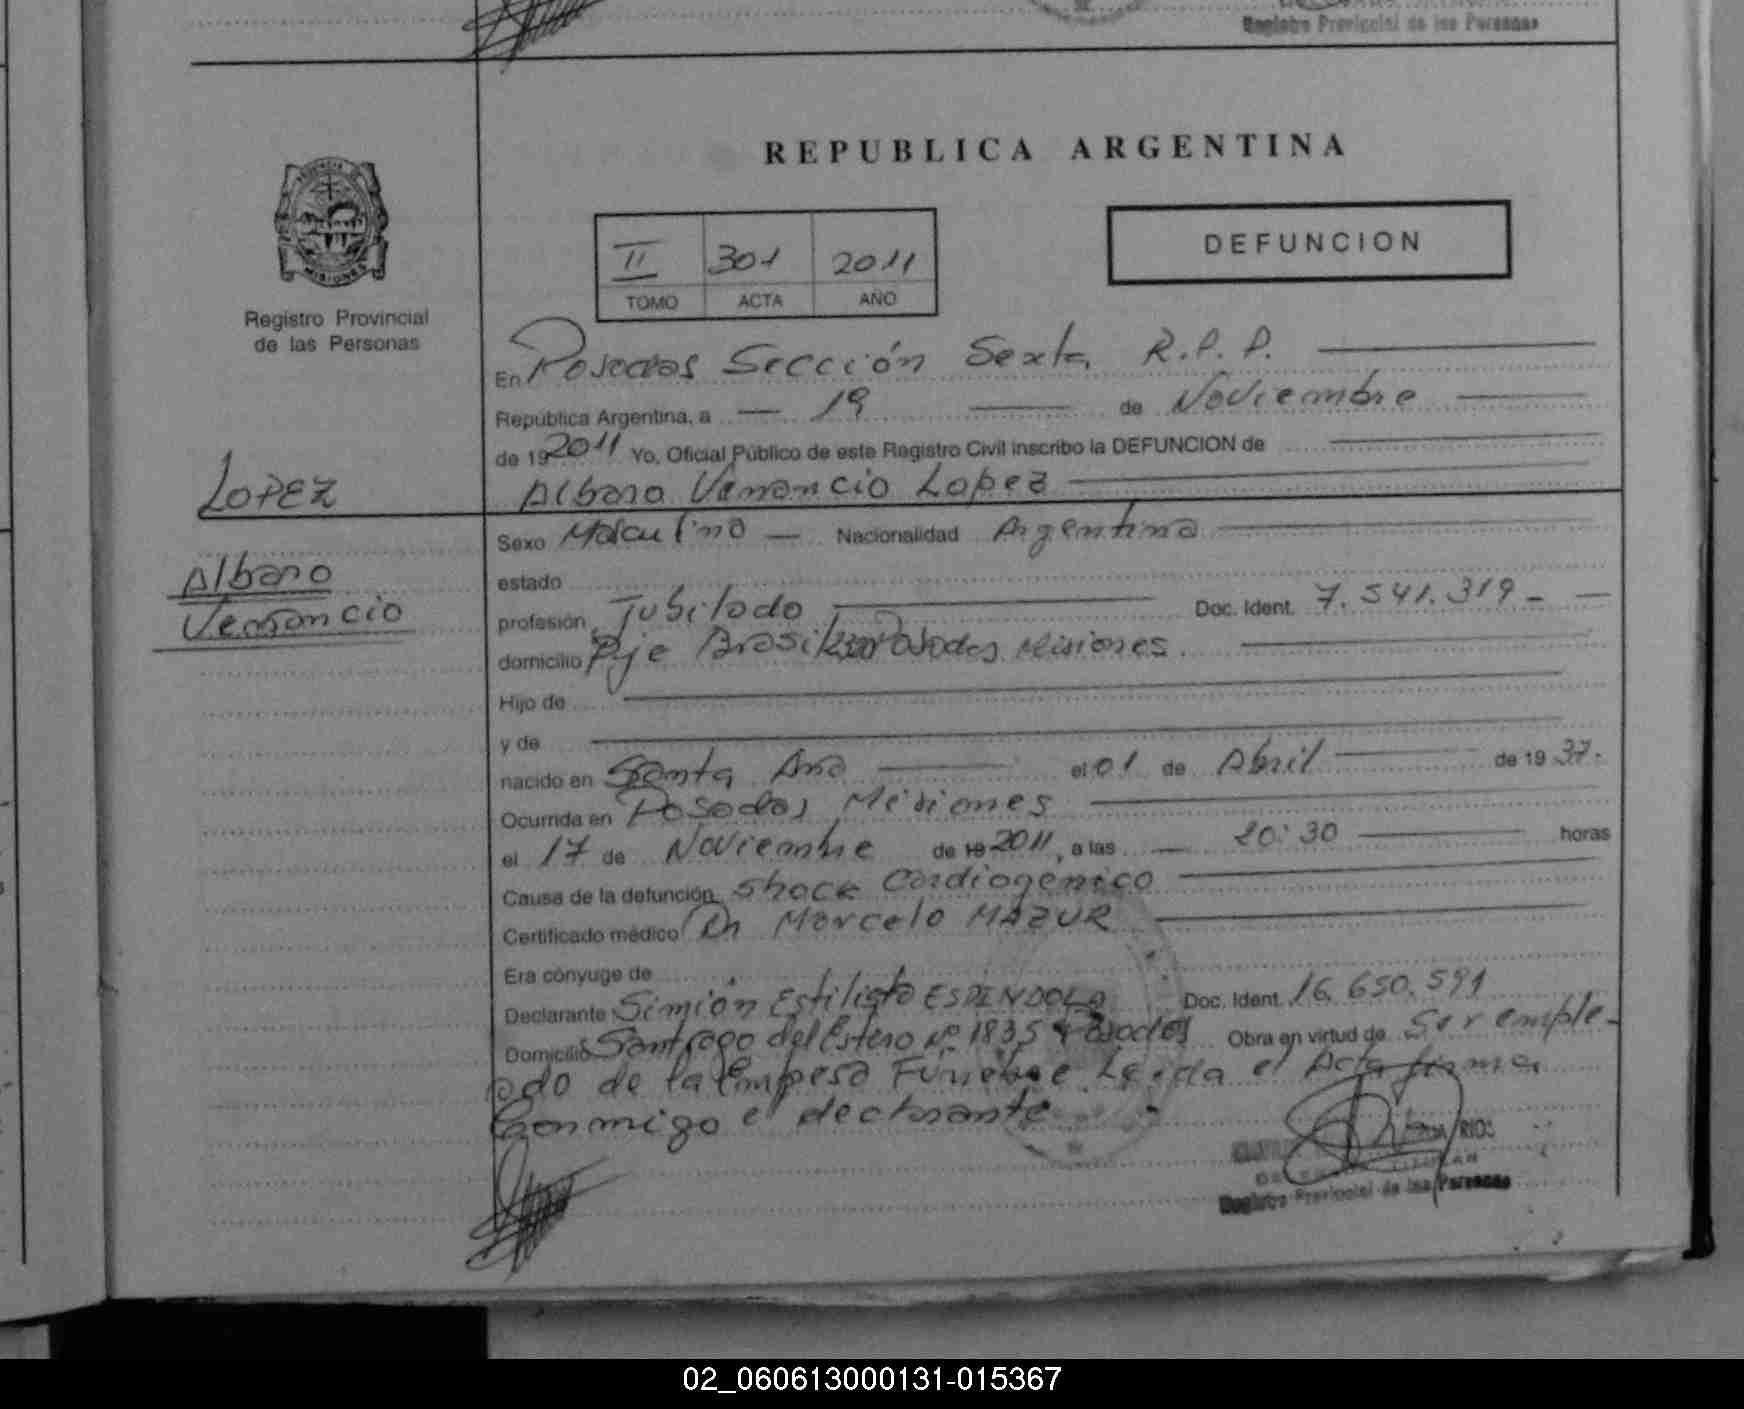 Registro Provincial de las Personas
REPUBLICA ARGENTINA
MISIONES
Registro Provincial
de las Personas
II 301 2011
TOMO ACTA AÑO
DEFUNCION
En Posadas Sección Sexta R.P.P.
República Argentina, a 19 de Noviembre
de 19 2011 Yo, Oficial Público de este Registro Civil inscribo la DEFUNCION de
Albano Venancio Lopez
LOPEZ
Albano
Venancio
Sexo Masculino Nacionalidad Argentina
estado
profesión Jubilado Doc. Ident. 7.541.319
domicilio Pje Brasil Posadas Misiones
Hijo de
y de
nacido en Santa Ana el 01 de Abril de 19 37.
Ocurrida en Posadas Misiones
el 17 de Noviembre de 19 2011, a las 20:30 horas
Causa de la defunción Shock Cardiogenico
Certificado médico Dr Marcelo MAZUR
Era cónyuge de
Declarante Simión Estilisto ESPINDOLA Doc. Ident. 16.650.591
Domicilio Santiago del Estero Nº 1835 Posadas Obra en virtud de Ser emple-
ado de la Empesa Funebre Leida el Acta firma
Conmigo el declarante
RIOS
Registro Provincial de las Personas
02_060613000131-015367